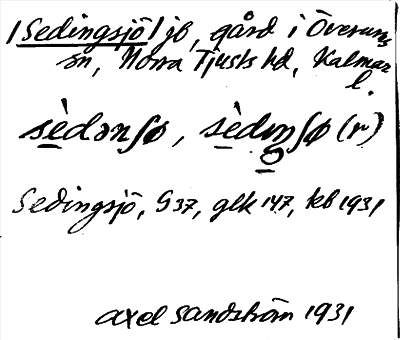 /Sedingsjö/ jb, gård i Överums
sn, Norra Tjusts hd, Kalmar
l.
sèdənʃø, sèdɪŋʃø (r)
Sedingsjö, G 37, glk 147, kb 1931
Axel Sandström 1931